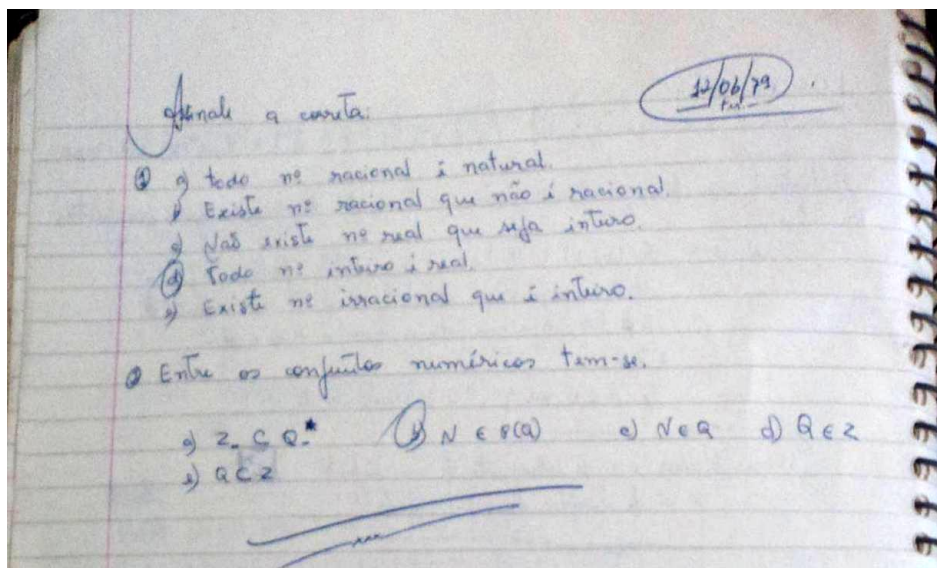 12/06/79
Assinale a correta.
1 a) todo nº racional é natural.
b) Existe nº racional que não é racional.
c) Não existe nº real que seja inteiro.
d) Todo nº inteiro é real.
e) Existe nº irracional que é inteiro.
2 Entre os conjuntos numéricos tem-se.
a) Z_ C Q_* b) N ∈ P(Q) c) N ∈ Q d) Q ∈ Z
e) Q C Z